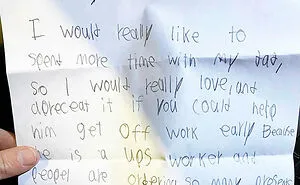 I would really like to
spend more time with my dad,
so I would really love, and
apreceat it if you could help
him get Off work early Because
he is a UPS worker and
peopel are ordering so many presents